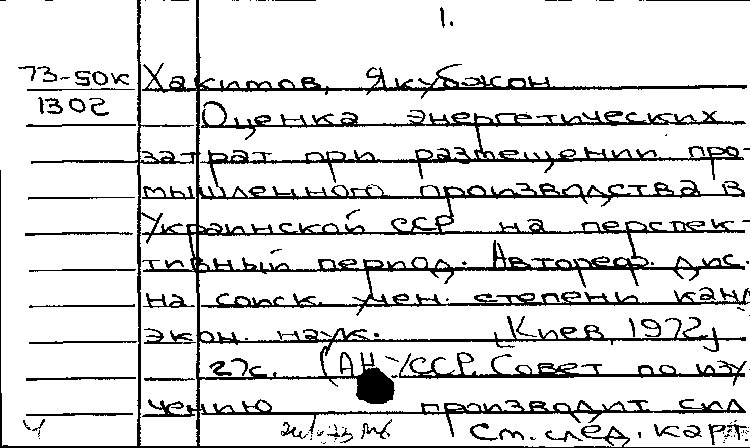 1.
73-50к Хакимов, Якубжон
1302 Оценка энергетических
затрат при размещении про-
мышленного производства в
Украинской ССР на перспек-
тивный период. Автореф. дис.
на соиск. учен. степени канд
экон. наук. [Киев, 1972]
27с. (АН УССР. Совет по изу-
чению производит сил
Ч См. след. карт